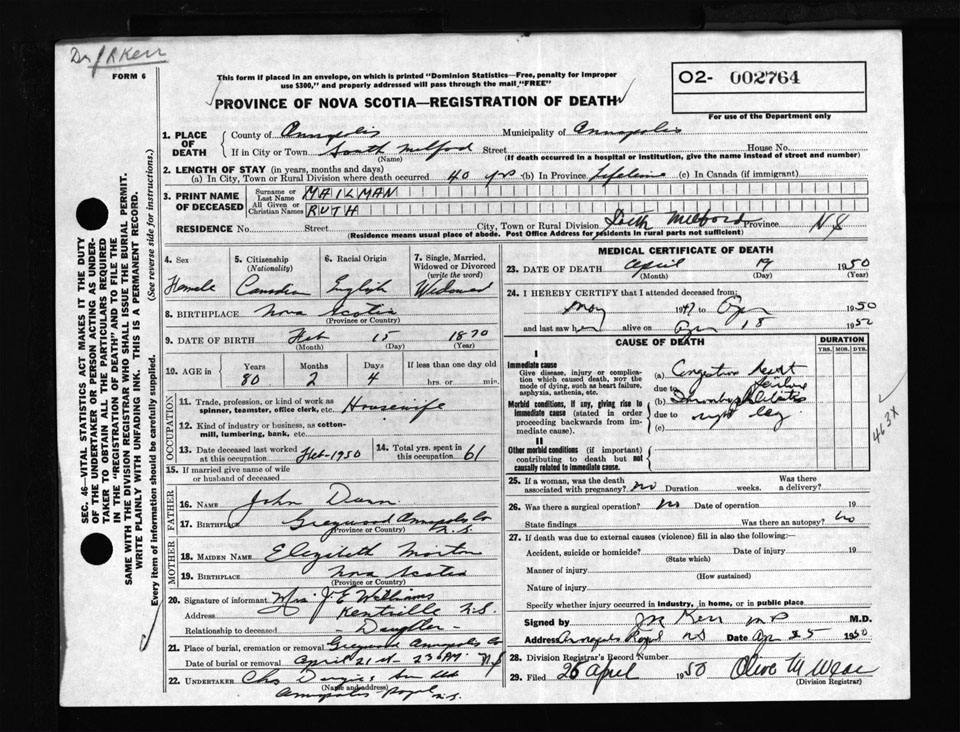 Dr J R Kerr
FORM 6
This form if placed in an envelope, on which is printed "Dominion Statistics—Free, penalty for improper
use $300," and properly addressed will pass through the mail "FREE"
O2- 002764
For use of the Department only
PROVINCE OF NOVA SCOTIA—REGISTRATION OF DEATH
SEC. 46—VITAL STATISTICS ACT MAKES IT THE DUTY
OF THE UNDERTAKER OR PERSON ACTING AS UNDER-
TAKER TO OBTAIN ALL THE PARTICULARS REQUIRED
IN THE "REGISTRATION OF DEATH" AND TO FILE THE
SAME WITH THE DIVISION REGISTRAR WHO SHALL ISSUE THE BURIAL PERMIT.
WRITE PLAINLY WITH UNFADING INK. THIS IS A PERMANENT RECORD.
Every item of information should be carefully supplied. (See reverse side for instructions.)
1. PLACE OF DEATH
County of Annapolis Municipality of Annapolis
If in City or Town South Milford Street House No.
(Name) (If death occurred in a hospital or institution, give the name instead of street and number)
2. LENGTH OF STAY (in years, months and days)
(a) In City, Town or Rural Division where death occurred 40 yrs (b) In Province Lifetime (c) In Canada (if immigrant)
3. PRINT NAME OF DECEASED
Surname or Last Name MAILMAN
All Given or Christian Names RUTH
RESIDENCE No. Street City, Town or Rural Division South Milford Province N S
(Residence means usual place of abode. Post Office Address for residents in rural parts not sufficient)
4. Sex Female
5. Citizenship (Nationality) Canadian
6. Racial Origin English
7. Single, Married, Widowed or Divorced (write the word) Widowed
8. BIRTHPLACE Nova Scotia
(Province or Country)
9. DATE OF BIRTH Feb 15 1870
(Month) (Day) (Year)
10. AGE in Years 80 Months 2 Days 4 If less than one day hrs. or min.
OCCUPATION
11. Trade, profession, or kind of work as spinner, teamster, office clerk, etc. Housewife
12. Kind of industry or business, as cotton-mill, lumbering, bank, etc.
13. Date deceased last worked at this occupation Feb-1950
14. Total yrs. spent in this occupation 61
15. If married give name of wife or husband of deceased
FATHER
16. NAME John Dunn
17. BIRTHPLACE Greywood Annapolis Co N.S.
(Province or Country)
MOTHER
18. MAIDEN NAME Elizabeth Morton
19. BIRTHPLACE Nova Scotia
(Province or Country)
20. Signature of informant Mrs J E Williams
Address Kentville N.S.
Relationship to deceased Daughter
21. Place of burial, cremation or removal Greywood Annapolis Co
Date of burial or removal April 21st - 230 PM. N.S
22. UNDERTAKER Chs
(Name and address) Annapolis Royal N.S.
MEDICAL CERTIFICATE OF DEATH
23. DATE OF DEATH April 19 1950
(Month) (Day) (Year)
24. I HEREBY CERTIFY that I attended deceased from:
May 1947 to Apr 1950
and last saw her alive on Apr 18 1950
CAUSE OF DEATH
DURATION
YRS. MOS. DYS.
I
Immediate cause
Give disease, injury or complication which caused death, not the mode of dying, such as heart failure, asphyxia, asthenia, etc.
(a) Congestive heart failure
due to
Morbid conditions, if any, giving rise to immediate cause (stated in order proceeding backwards from immediate cause).
(b) Thrombophlebitis
due to right leg
(c)
II
Other morbid conditions (if important) contributing to death but not causally related to immediate cause.
463X
25. If a woman, was the death associated with pregnancy? no Duration weeks. Was there a delivery?
26. Was there a surgical operation? No Date of operation 19
State findings Was there an autopsy? No
27. If death was due to external causes (violence) fill in also the following:—
Accident, suicide or homicide? Date of injury 19
(State which)
Manner of injury
(How sustained)
Nature of injury
Specify whether injury occurred in industry, in home, or in public place
Signed by Kerr MD M.D.
Address Annapolis Royal NS Date Apr 25 1950
28. Division Registrar's Record Number
29. Filed 26 April 1950 Olive M
(Division Registrar)